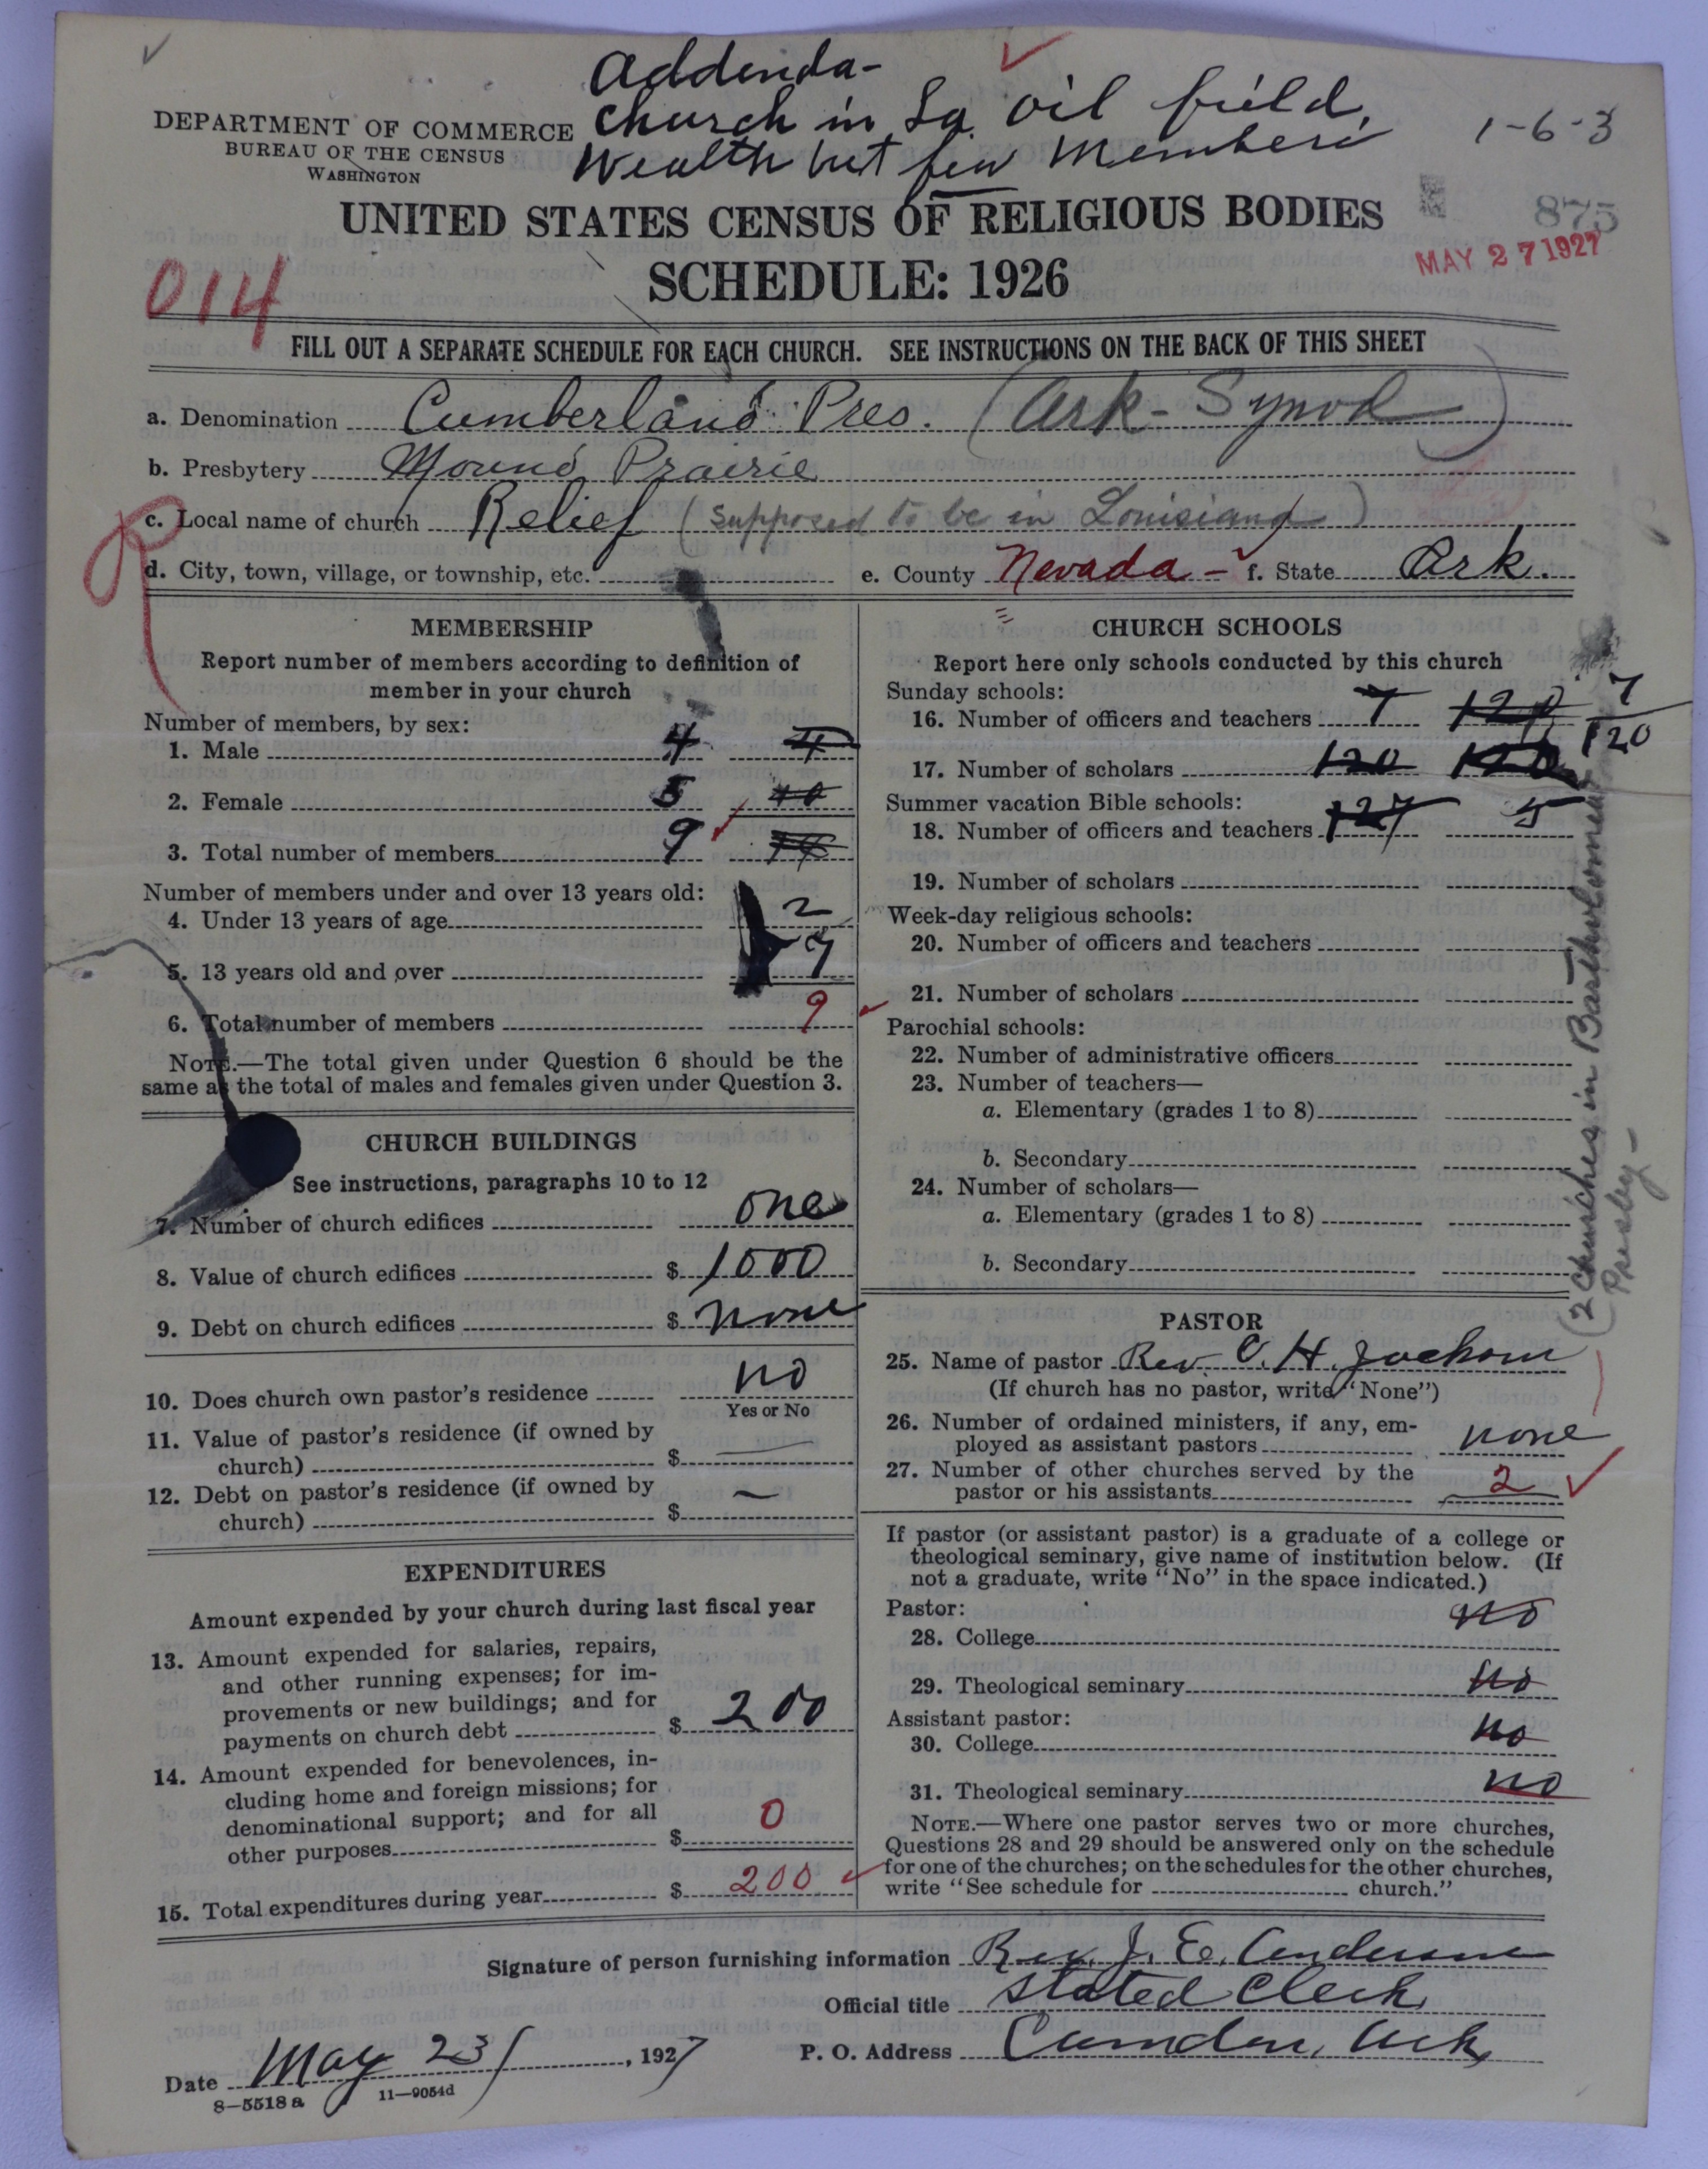 Addenda-
Church in La oil field,
Wealth but few Members
1-6-3
DEPARTMENT OF COMMERCE
BUREAU OF THE CENSUS
WASHINGTON
UNITED STATES CENSUS OF RELIGIOUS BODIES
875
MAY 27 1927
SCHEDULE: 1926
014
FILL OUT A SEPARATE SCHEDULE FOR EACH CHURCH. SEE INSTRUCTIONS ON THE BACK OF THIS SHEET
a. Denomination Cumberland Pres. (Ark-Synod)
b. Presbytery Mound Prairie
c. Local name of church Relief (Supposed to be in Louisiana)
d. City, town, village, or township, etc. e. County Nevada - f. State Ark.
MEMBERSHIP
Report number of members according to definition of
member in your church
Number of members, by sex:
1. Male 4 4
2. Female 5 10
3. Total number of members 9 14
Number of members under and over 13 years old:
4. Under 13 years of age 2
5. 13 years old and over 7
6. Total number of members 9
NOTE.—The total given under Question 6 should be the
same as the total of males and females given under Question 3.
CHURCH BUILDINGS
See instructions, paragraphs 10 to 12
7. Number of church edifices one
8. Value of church edifices $ 1000
9. Debt on church edifices $ none
10. Does church own pastor's residence no
Yes or No
11. Value of pastor's residence (if owned by
church) $ —
12. Debt on pastor's residence (if owned by
church) $ —
EXPENDITURES
Amount expended by your church during last fiscal year
13. Amount expended for salaries, repairs,
and other running expenses; for im-
provements or new buildings; and for
payments on church debt $ 200
14. Amount expended for benevolences, in-
cluding home and foreign missions; for
denominational support; and for all
other purposes $ 0
15. Total expenditures during year $ 200
CHURCH SCHOOLS
Report here only schools conducted by this church
Sunday schools:
16. Number of officers and teachers 7 120 7
17. Number of scholars 120 120 120
Summer vacation Bible schools:
18. Number of officers and teachers 127 5
19. Number of scholars
Week-day religious schools:
20. Number of officers and teachers
21. Number of scholars
Parochial schools:
22. Number of administrative officers
23. Number of teachers—
a. Elementary (grades 1 to 8)
b. Secondary
24. Number of scholars—
a. Elementary (grades 1 to 8)
b. Secondary
(2 churches in Bartholomew
Presby-
PASTOR
25. Name of pastor Rev. C. H. Jackson
(If church has no pastor, write "None")
26. Number of ordained ministers, if any, em-
ployed as assistant pastors none
27. Number of other churches served by the
pastor or his assistants 2
If pastor (or assistant pastor) is a graduate of a college or
theological seminary, give name of institution below. (If
not a graduate, write "No" in the space indicated.)
Pastor:
28. College no
29. Theological seminary no
Assistant pastor:
30. College no
31. Theological seminary no
NOTE.—Where one pastor serves two or more churches,
Questions 28 and 29 should be answered only on the schedule
for one of the churches; on the schedules for the other churches,
write "See schedule for church."
Signature of person furnishing information Rev. J. E. Anderson
Official title Stated Clerk
Date May 23, 1927 P. O. Address Camden, Ark,
8—5518 a 11—9054d